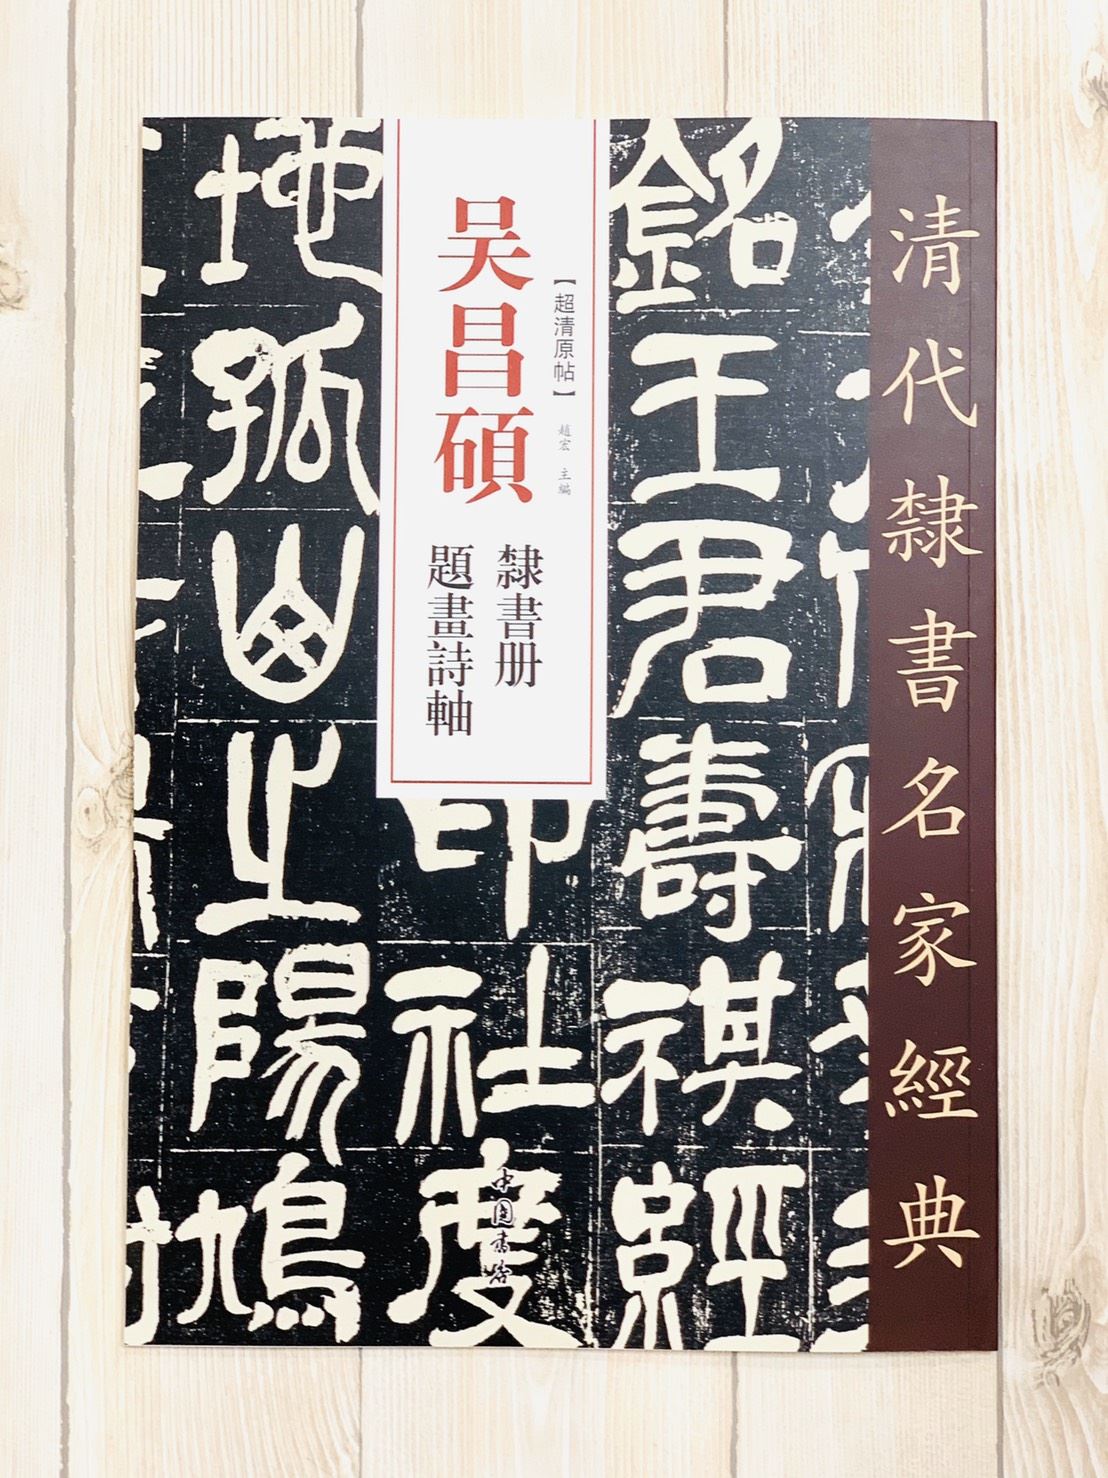 清代隸書名家經典
【超清原帖】
趙宏 主編
吴昌碩
隸書册
題畫詩軸
銘王君壽祺經
印社度
地孤山之陽鳩
中国書店